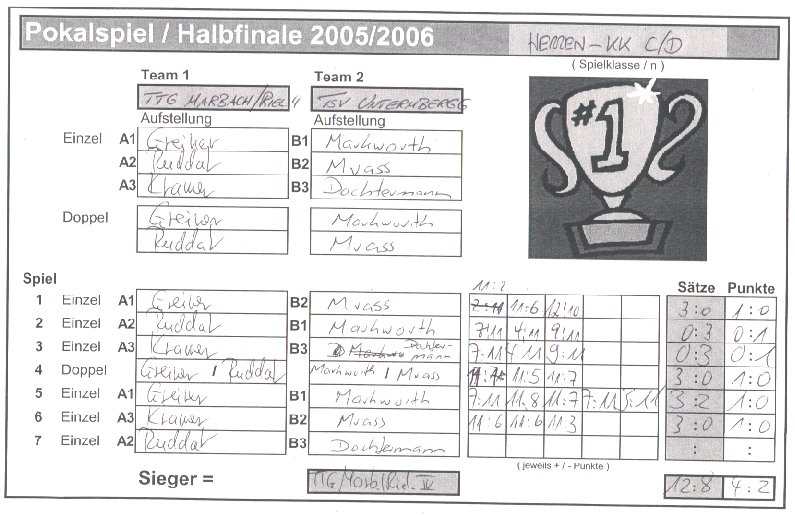 Pokalspiel / Halbfinale 2005/2006 HERREN-KK C/D
( Spielklasse / n )
Team 1 Team 2
TTG MARBACH/RIEL. 4 TSV UNTERMBERG
Aufstellung Aufstellung
#1
Einzel A1 Greiner B1 Markworth
A2 Ruddat B2 Mvass
A3 Kramer B3 Dochtermann
Doppel Greiner Markworth
Ruddat Mvass
Spiel 11:2 Sätze Punkte
1 Einzel A1 Greiner B2 Mvass 2:11 11:6 12:10 3:0 1:0
2 Einzel A2 Ruddat B1 Markworth 7:11 4:11 9:11 0:3 0:1
3 Einzel A3 Kramer B3 Dochtermann 7:11 4:11 9:11 0:3 0:1
4 Doppel Greiner / Ruddat Markworth / Mvass 11:5 11:7 3:0 1:0
5 Einzel A1 Greiner B1 Markworth 7:11 11:8 11:7 7:11 3:2 1:0
6 Einzel A3 Kramer B2 Mvass 11:6 11:6 11:3 3:0 1:0
7 Einzel A2 Ruddat B3 Dochtermann : :
( jeweils + / - Punkte )
Sieger = TTG/Marb/Riel. IV 12:8 4:2